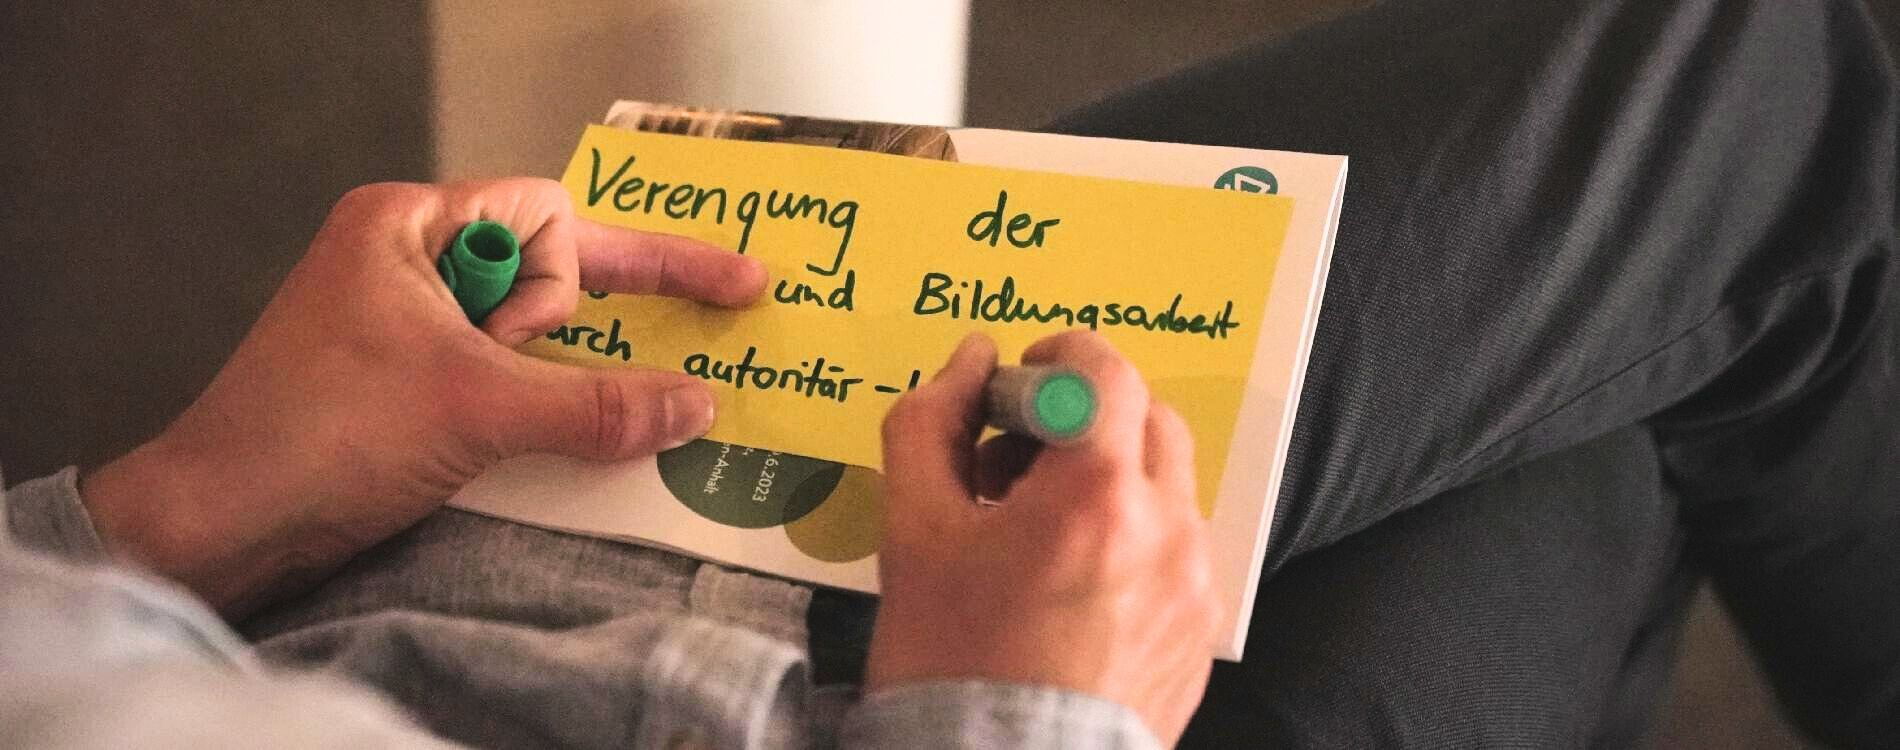 Verengung der
und Bildungsarbeit
durch autoritär-
6.2023
n-Anhalt